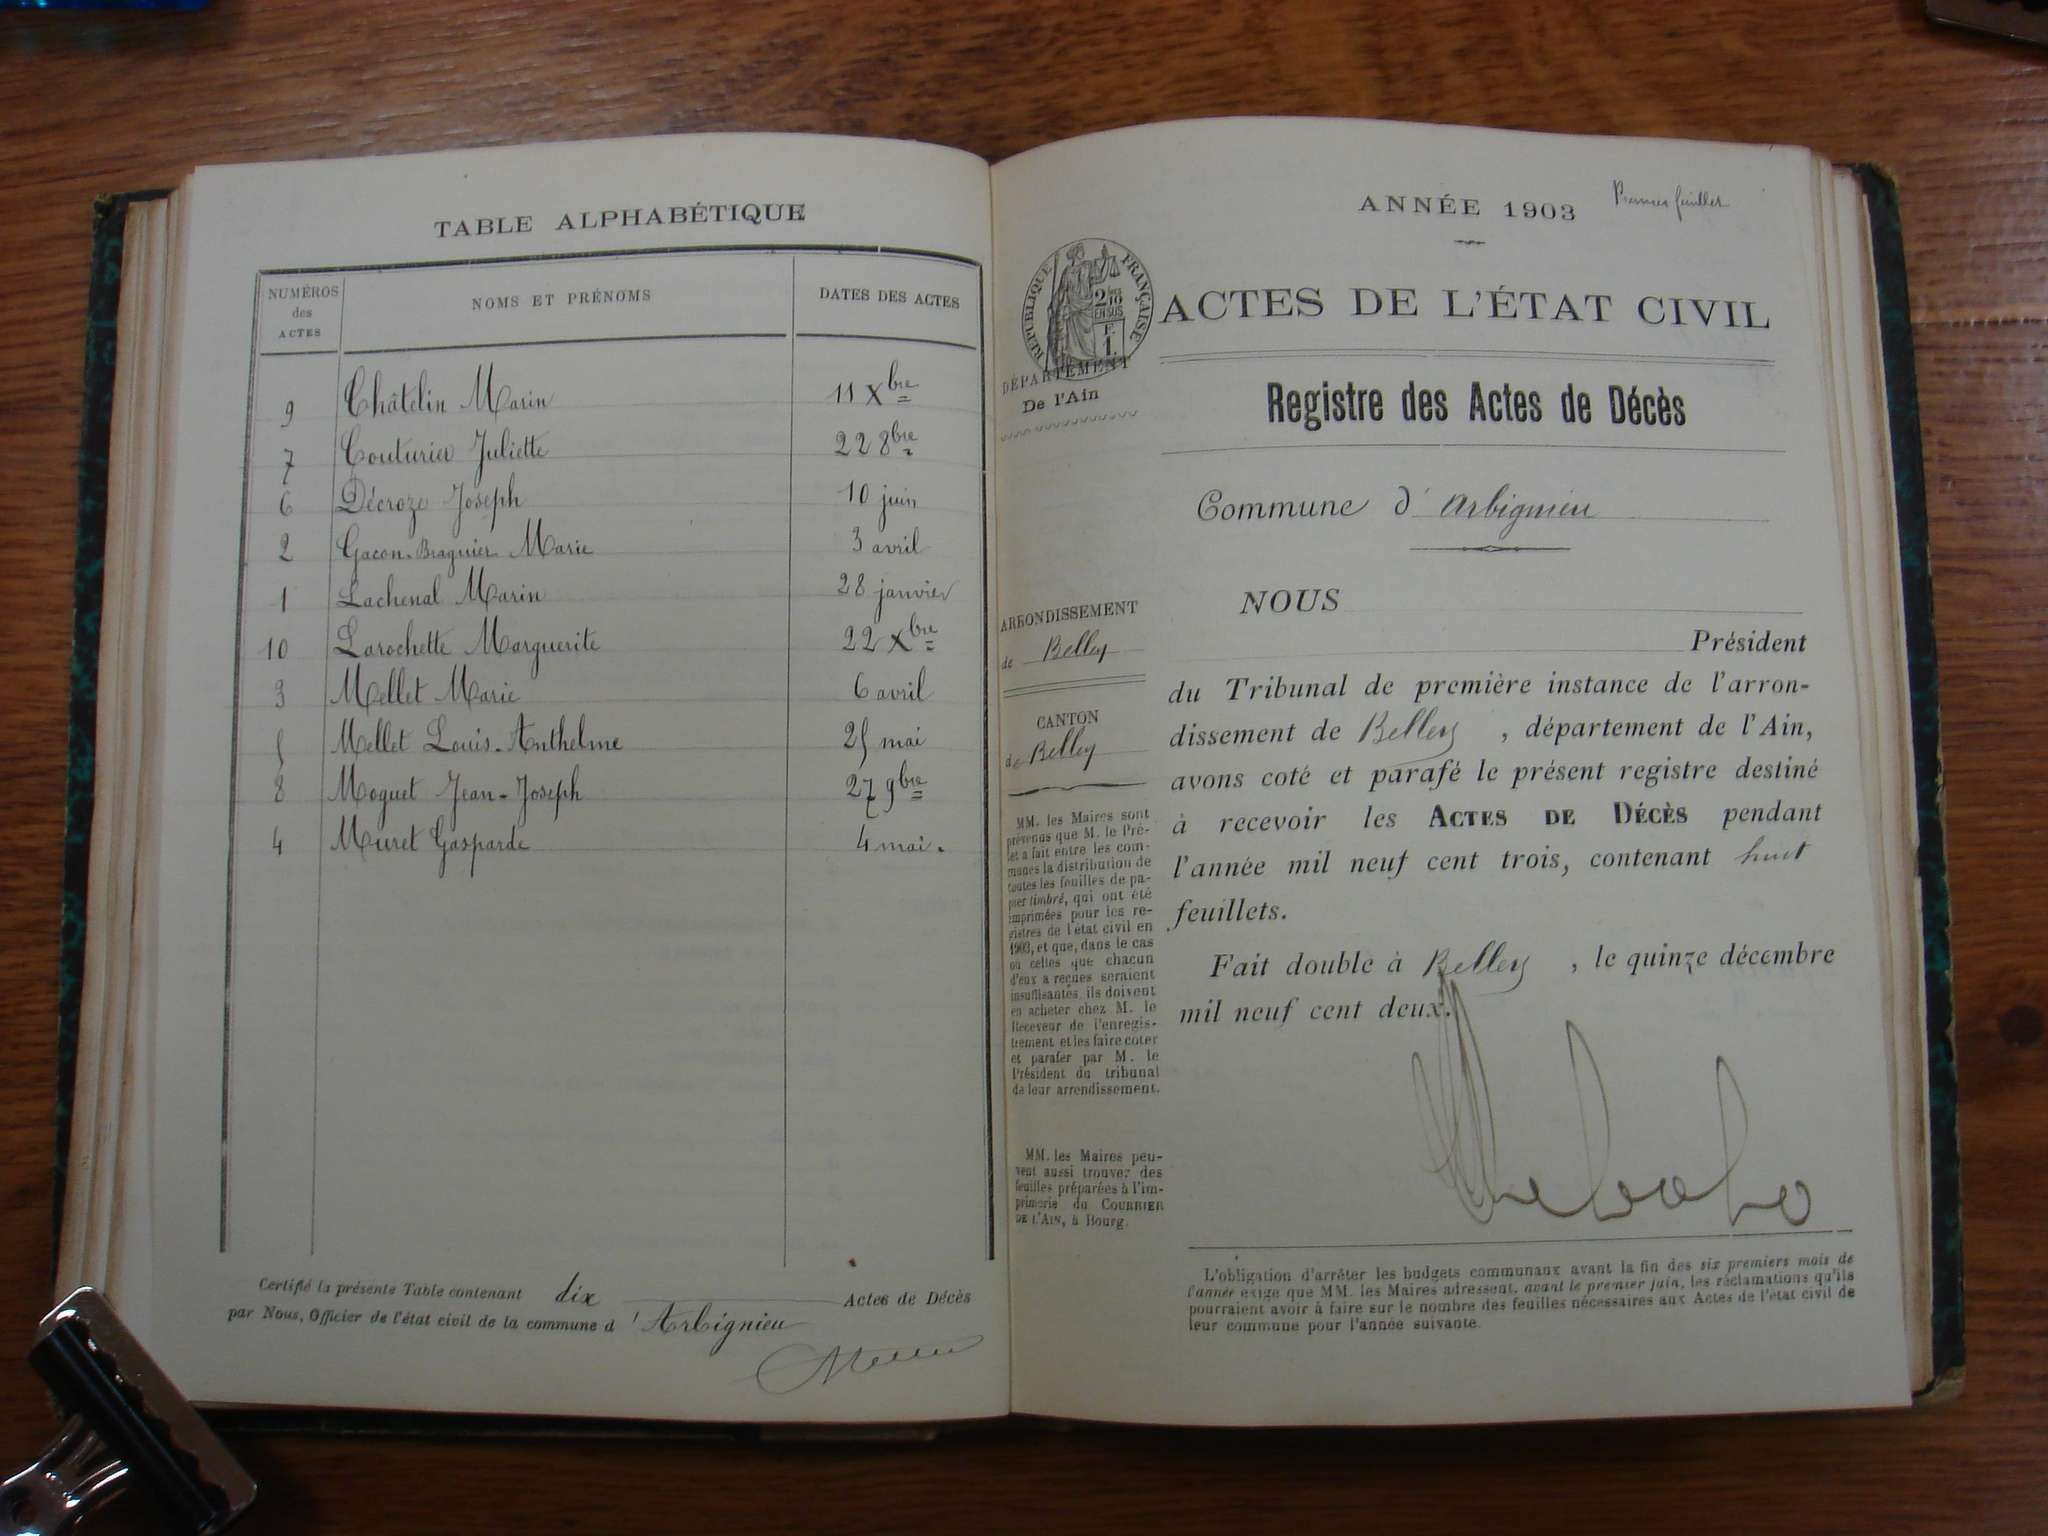 TABLE ALPHABÉTIQUE
NUMÉROS des ACTES NOMS ET PRÉNOMS DATES DES ACTES
9 Châtelin Marin 11 Xbre
7 Couturier Juliette 22 8bre
6 Décroze Joseph 10 juin
2 Gacon-Braguier Marie 3 avril
1 Lachenal Marin 28 janvier
10 Larochette Marguerite 22 Xbre
3 Mellet Marie 6 avril
5 Mellet Louis-Anthelme 25 mai
8 Moguet Jean-Joseph 27 9bre
4 Muret Gasparde 4 mai.
Certifié la présente Table contenant dix Actes de Décès
par Nous, Officier de l'état civil de la commune d'Arbignieu
ANNÉE 1903
Premier feuillet
RÉPUBLIQUE FRANÇAISE
2/10 EN SUS
F. 1.
ACTES DE L'ÉTAT CIVIL
DÉPARTEMENT
De l'Ain
Registre des Actes de Décès
Commune d'Arbignieu
ARRONDISSEMENT
de Belley
CANTON
de Belley
MM. les Maires sont
prévenus que M. le Pré-
fet a fait entre les com-
munes la distribution de
toutes les feuilles de pa-
pier timbré, qui ont été
imprimées pour les re-
gistres de l'état civil en
1903, et que, dans le cas
où celles que chacun
d'eux a reçues seraient
insuffisantes, ils doivent
en acheter chez M. le
Receveur de l'enregis-
trement et les faire coter
et parafer par M. le
Président du tribunal
de leur arrendissement.
MM. les Maires peu-
vent aussi trouver des
feuilles préparées à l'im-
primerie du COURRIER
DE L'AIN, à Bourg.
NOUS
Président
du Tribunal de première instance de l'arron-
dissement de Belley, département de l'Ain,
avons coté et parafé le présent registre destiné
à recevoir les ACTES DE DÉCÈS pendant
l'année mil neuf cent trois, contenant huit
feuillets.
Fait double à Belley, le quinze décembre
mil neuf cent deux.
L'obligation d'arrêter les budgets communaux avant la fin des six premiers mois de
l'année exige que MM. les Maires adressent, avant le premier juin, les réclamations qu'ils
pourraient avoir à faire sur le nombre des feuilles nécessaires aux Actes de l'état civil de
leur commune pour l'année suivante.